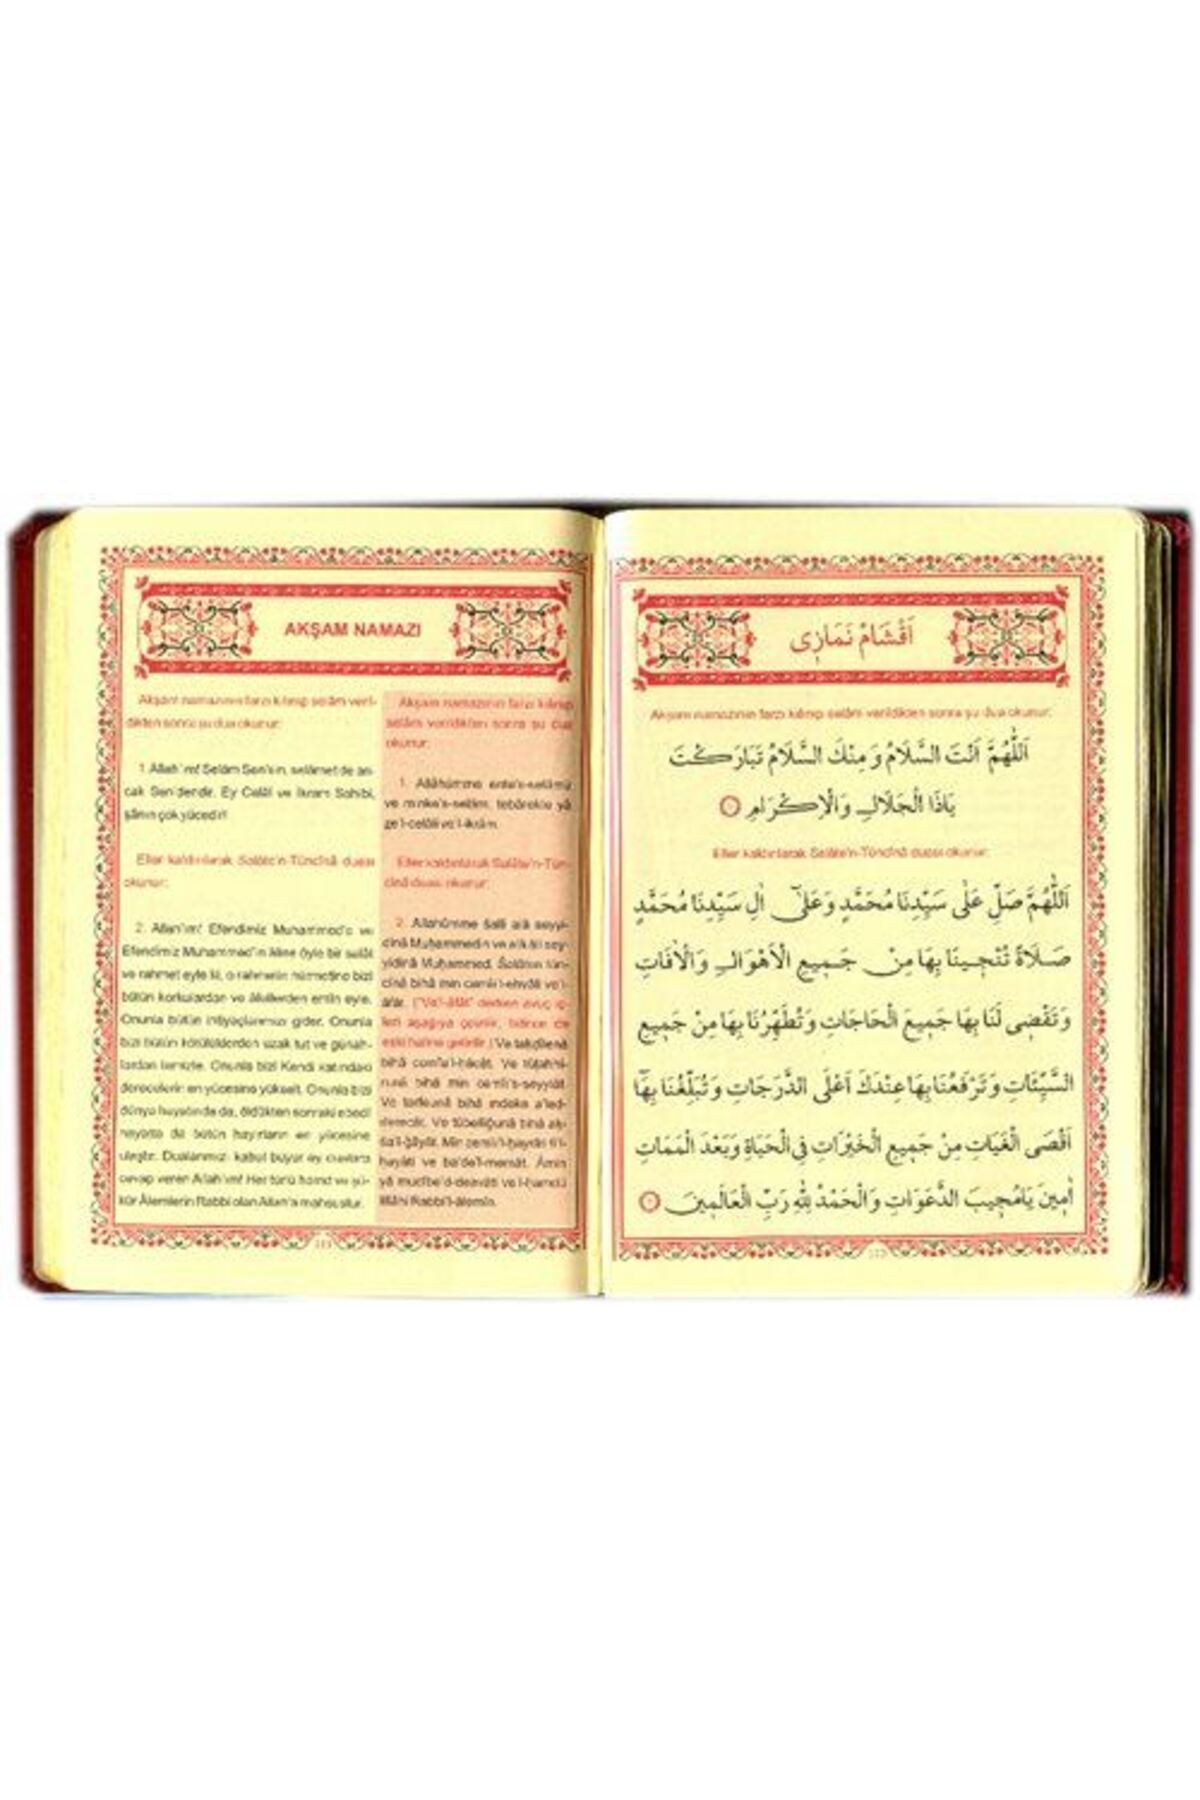 AKŞAM NAMAZI
Akşam namazının farzı kılınıp selâm veril-
dikten sonra şu dua okunur:
1. Allah'ım! Selâm Sen'sin, selâmet de an-
cak Sen'dendir. Ey Celâl ve İkram Sahibi,
şânın çok yücedir!
Eller kaldırılarak Salâte'n-Tüncînâ duası
okunur:
2. Allah'ım! Efendimiz Muhammed'e ve
Efendimiz Muhammed'in âline öyle bir salât
ve rahmet eyle ki, o rahmetin hürmetine bizi
bütün korkulardan ve âfetlerden emîn eyle.
Onunla bütün ihtiyaçlarımızı gider. Onunla
bizi bütün kötülüklerden uzak tut ve günah-
lardan temizle. Onunla bizi Kendi katındaki
derecelerin en yücesine yükselt. Onunla bizi
dünya hayatında da, öldükten sonraki ebedî
hayatta da bütün hayırların en yücesine
ulaştır. Dualarımızı kabul buyur ey dualara
cevap veren Allah'ım! Her türlü hamd ve şü-
kür Âlemlerin Rabbi olan Allah'a mahsustur.
Akşam namazının farzı kılınıp
selâm verildikten sonra şu dua
okunur:
1. Allâhümme ente's-selâmü
ve minke's-selâm, tebârekte yâ
ze'l-celâli ve'l-ikrâm.
Eller kaldırılarak Salâte'n-Tün-
cînâ duası okunur:
2. Allahümme Salli alâ seyyi-
dinâ Muhammedin ve alâ âli sey-
yidinâ Muhammed. Salâten tün-
cînâ bihâ min cemîi'l-ehvâli ve'l-
âfât. ("Ve'l-âfât" derken avuç iç-
leri aşağıya çevrilir, bitince de
eski haline getirilir.) Ve takdîlenâ
bihâ cemîa'l-hâcât. Ve tütahhi-
runâ bihâ min cemîi's-seyyiât.
Ve terfeunâ bihâ indeke a'led-
derecât. Ve tübelliğunâ bihâ ak-
sa'l-ğâyât. Min cemîi'l-hayrâti fi'l-
hayâti ve ba'de'l-memât. Âmin
yâ mucîbe'd-deavâti ve'l-hamdü
lillâhi Rabbi'l-âlemîn.
اَقْشَامْ نَمَازِى
Akşam namazının farzı kılınıp selâm verildikten sonra şu dua okunur:
اَللّٰهُمَّ اَنْتَ السَّلَامُ وَمِنْكَ السَّلَامُ تَبَارَكْتَ
يَاذَا الْجَلَالِ وَالْاِكْرَامِ ١
Eller kaldırılarak Salâte'n-Tüncînâ duası okunur:
اَللّٰهُمَّ صَلِّ عَلٰى سَيِّدِنَا مُحَمَّدٍ وَعَلٰٓى اٰلِ سَيِّدِنَا مُحَمَّدٍ
صَلَاةً تُنْجِينَا بِهَا مِنْ جَمِيعِ الْاَهْوَالِ وَالْاٰفَاتِ
وَتَقْضِى لَنَا بِهَا جَمِيعَ الْحَاجَاتِ وَتُطَهِّرُنَا بِهَا مِنْ جَمِيعِ
السَّيِّئَاتِ وَتَرْفَعُنَا بِهَا عِنْدَكَ اَعْلَى الدَّرَجَاتِ وَتُبَلِّغُنَا بِهَٓا
اَقْصَى الْغَيَاتِ مِنْ جَمِيعِ الْخَيْرَاتِ فِى الْحَيَاةِ وَبَعْدَ الْمَمَاتِ
اٰمِينَ يَامُجِيبَ الدَّعَوَاتِ وَالْحَمْدُ لِلّٰهِ رَبِّ الْعَالَمِينَ ٢